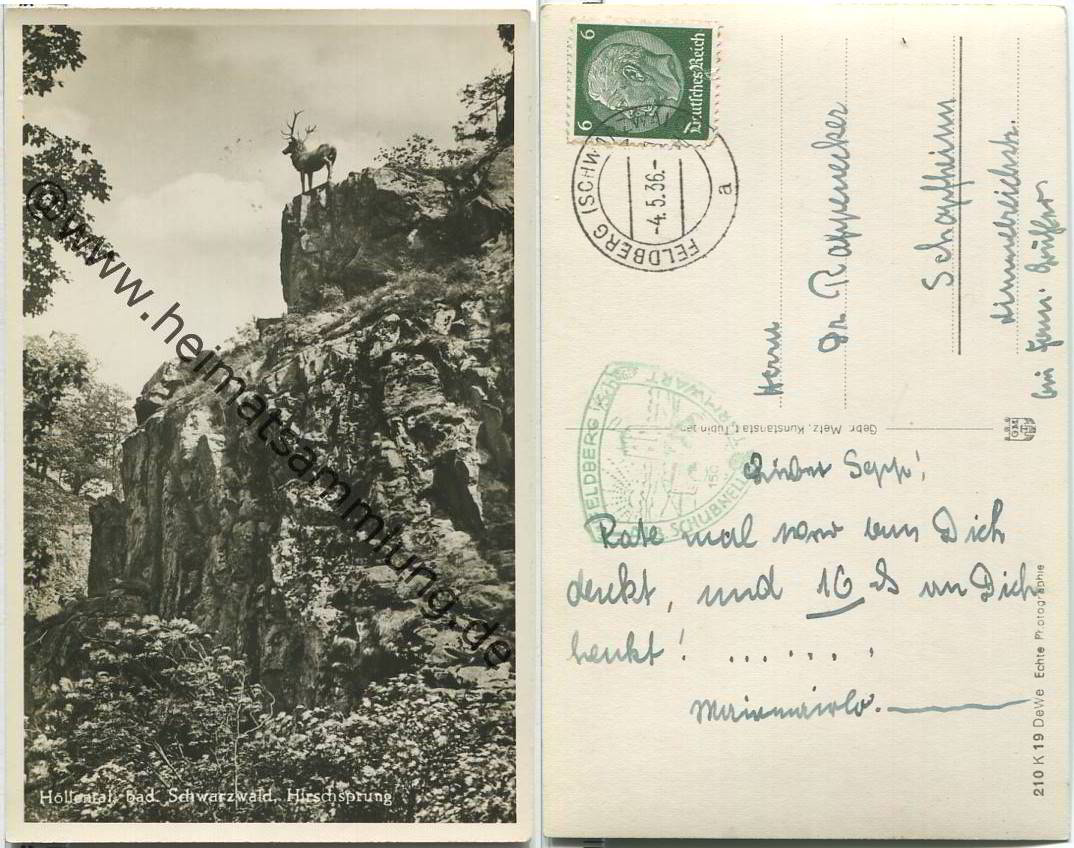 Höllental, bad. Schwarzwald, Hirschsprung
©www.heimatsammlung.de
6 Deutsches Reich 6
FELDBERG (SCHW
-4.5.36.-
a
Herrn
Dr. Rappenecker
Schopfheim
Himmelreichstr.
bei
FELDBERG
SCHUBNELL
Gebr. Metz, Kunstanstalt, Tübingen
GMT
Lieber Sepp!
Rate mal wer an Dich
denkt, und 10 an Dich
henkt! .......
210 K 19 DeWe Echte Photographie